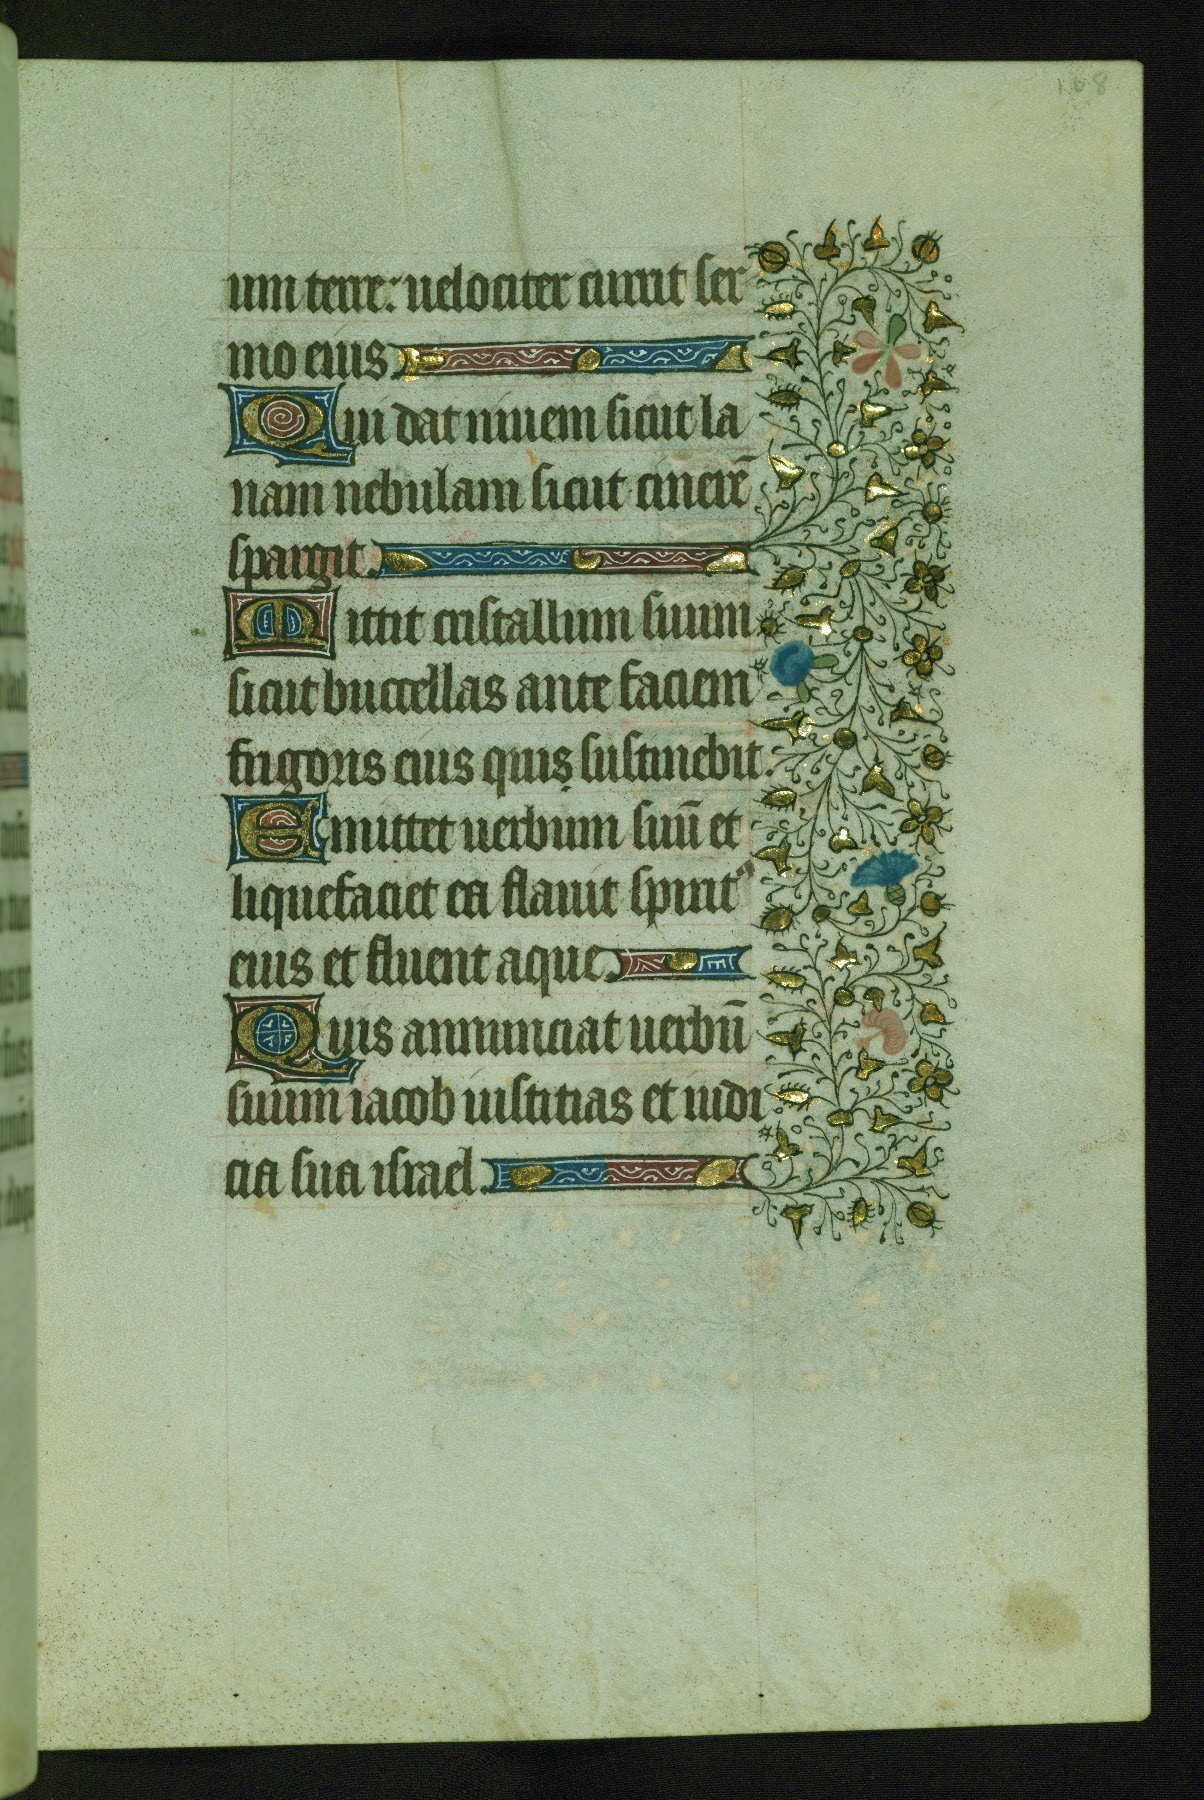 108
um terre: uelociter currit ser
mo eius
Qui dat niuem sicut la
nam nebulam sicut cinerē
spargit.
Mittit cristallum suum
sicut buccellas ante faciem
frigoris eius quis sustinebit.
Emittet uerbum suū et
liquefaciet ea flauit spirit⁹
eius et fluent aque.
Quis annunciat uerbū
suum iacob iustitias et iudi
cia sua israel.